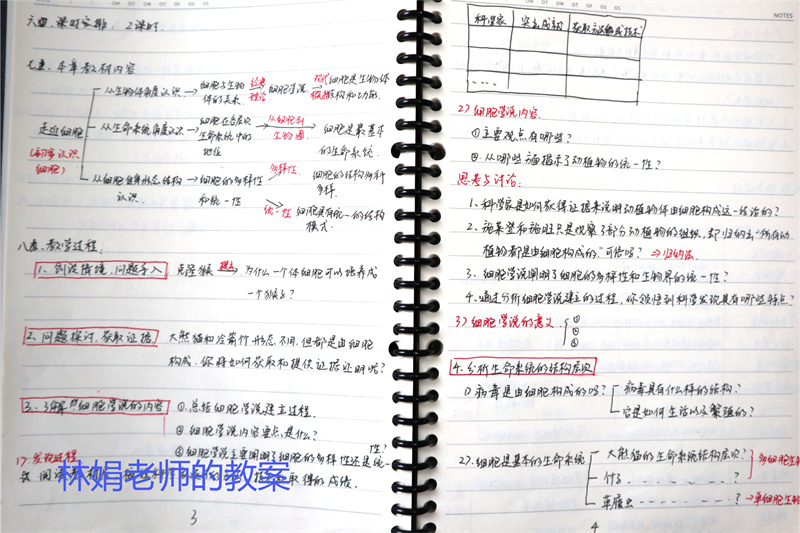 六、课时安排：2课时.
七、本章教材内容
走近细胞
(初步认识
细胞)
从生物体角度认识→细胞与生物体的关系 经典理论→细胞学说 细胞是生物体结构和功能
从生命系统角度认识→细胞在层次生命系统中的地位 从细胞到生物圈→细胞是最基本的生命系统.
从细胞自身形态结构认识→细胞的多样性和统一性
多样性 细胞的结构多种多样.
统一性 细胞具有统一的结构模式.
八、教学过程:
1、创设情境、问题导入 克隆猴 建立→为什么一个体细胞可以培养成
一个猴子？
2、问题探讨,获取证据 大熊猫和冷箭竹形态不同,但都是由细胞
构成.你将如何获取和提供证据证明呢？
3、了解"细胞学说的内容 ①.总结细胞学说建立过程.
②细胞学说内容要点是什么？
③细胞学说主要阐明了细胞的多样性还是统一性？
1).发现过程
取得的成绩.
林娟老师的教案
3
NOTES
科学家 突出成就 获取证据或技术
....
2)细胞学说内容.
①主要观点有哪些？
②从哪些方面揭示了动植物的统一性？
思考与讨论:
1、科学家是如何获得证据来说明动植物体由细胞构成这一结论的？
2、施莱登和施旺只是观察了部分动植物的组织,却归纳出"所有动
植物都是由细胞构成的."可信吗？⇒归纳法
3、细胞学说阐明了细胞的多样性和生物界的统一性？
4、通过分析细胞学说建立的过程,你领悟到科学发现具有哪些特点？
3)细胞学说的意义 ①
②
③
4、分析生命系统的结构层次
1)病毒是由细胞构成的吗？ 病毒具有什么样的结构？
它是如何生活以及繁殖的？
2).细胞是基本的生命系统 大熊猫的生命系统结构层次？ 多细胞生
竹子 ？
草履虫 ？→单细胞生物
4